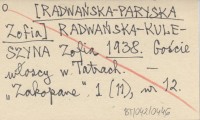 0 [RADWAŃSKA-PARYSKA
Zofia] RADWAŃSKA-KULE-
SZYNA Zofia 1938. Goście
włoscy w Tatrach. —
"Zakopane" 1 (11), nr 12.
BT/042/0445